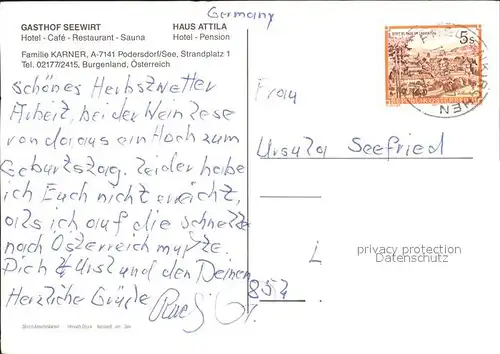 Germany
GASTHOF SEEWIRT HAUS ATTILA
Hotel - Café - Restaurant - Sauna Hotel - Pension
Familie KARNER, A-7141 Podersdorf/See, Strandplatz 1
Tel. 02177/2415, Burgenland, Österreich
5 S
schönes Herbstwetter
Arbeit, bei der Weinlese
von da aus ein Hoch zum
Geburtstag. Leider habe
ich Euch nicht erreicht,
als ich auf die schnelle
nach Österreich mußte.
Dich und den Deinen
Herzliche Grüße
Frau
Ursula Seefried
privacy protection
Datenschutz
852